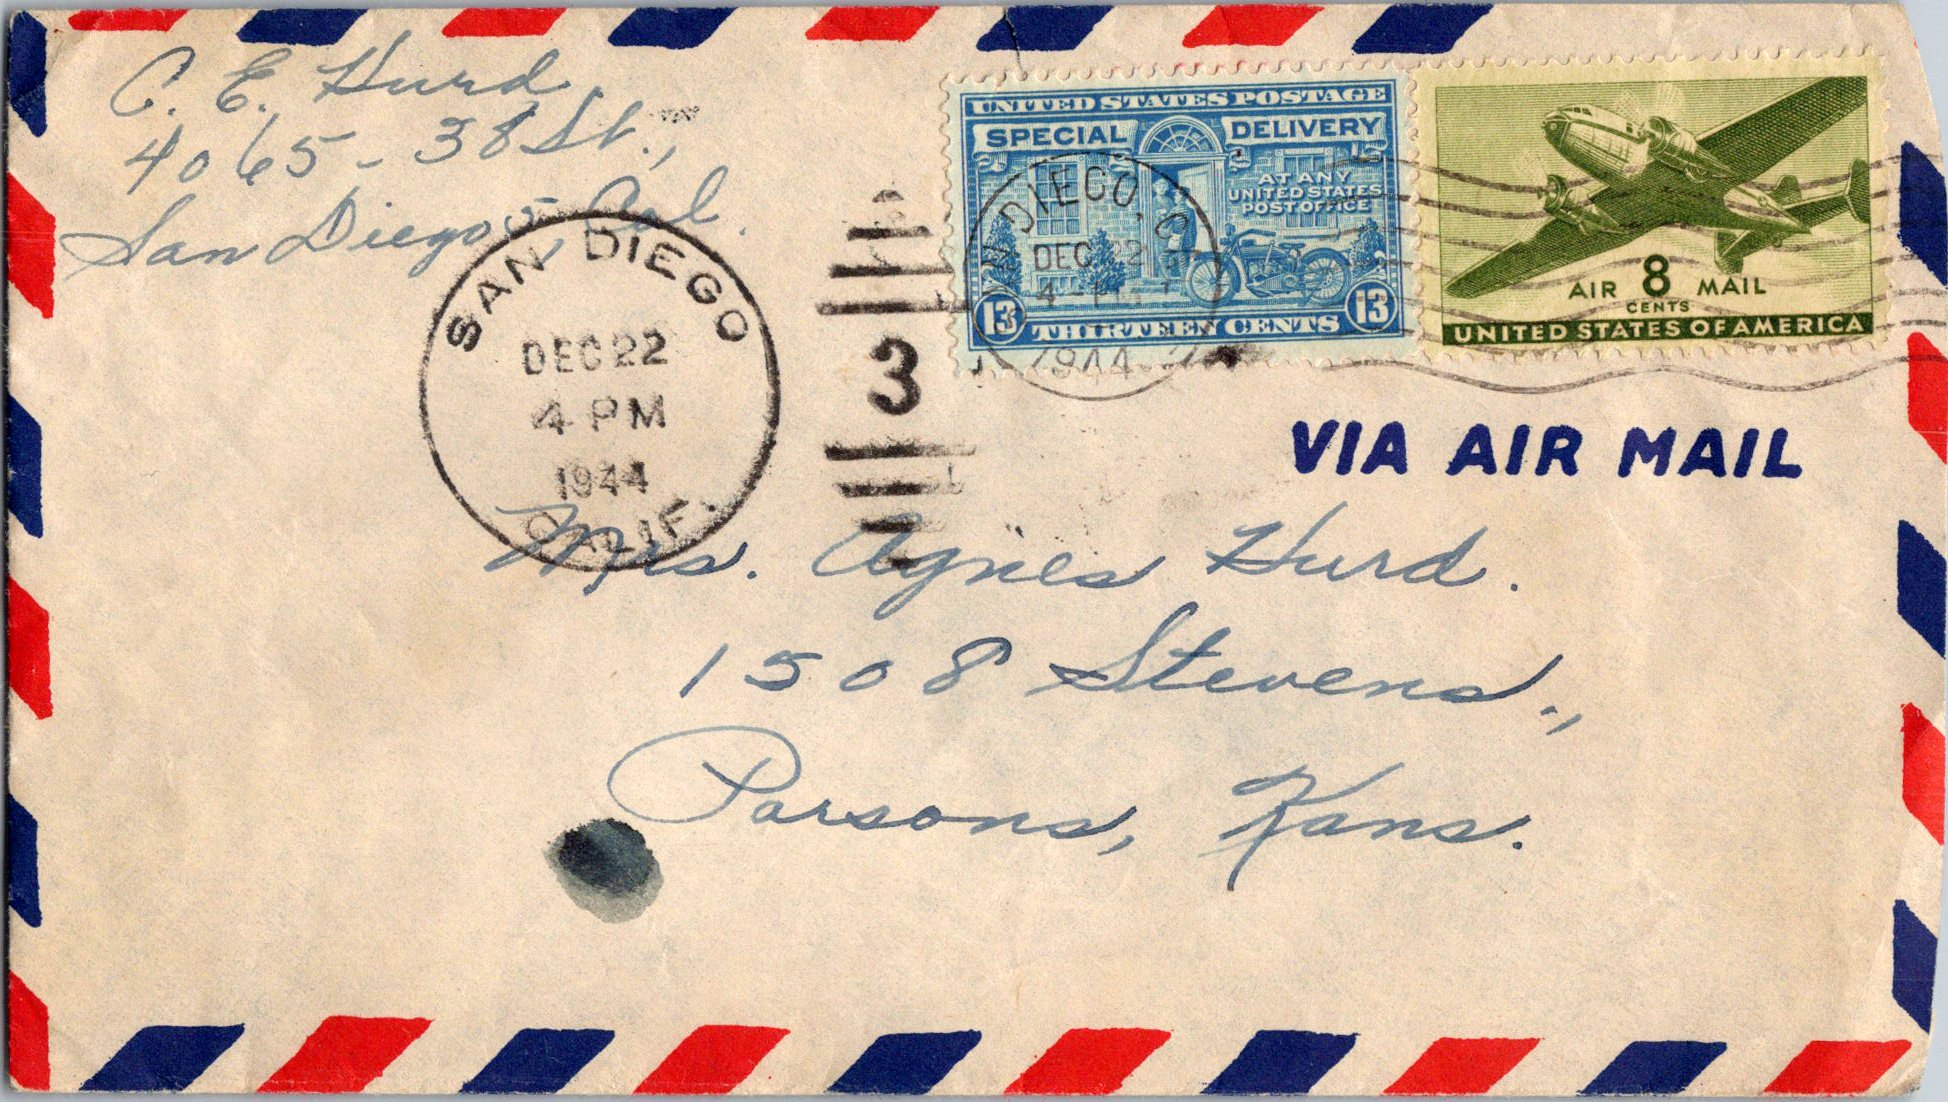 C. E. Hurd.
4065 - 38 St.,
San Diego 5, Cal.
SAN DIEGO
DEC 22
4 PM
1944
CALIF.
3
UNITED STATES POSTAGE
SPECIAL DELIVERY
AT ANY
UNITED STATES
POST OFFICE
13 THIRTEEN CENTS 13
DIEGO, C
DEC 22
4 - PM
1944
AIR 8 MAIL
CENTS
UNITED STATES OF AMERICA
VIA AIR MAIL
Mrs. Agnes Hurd.
1508 Stevens.,
Parsons, Kans.